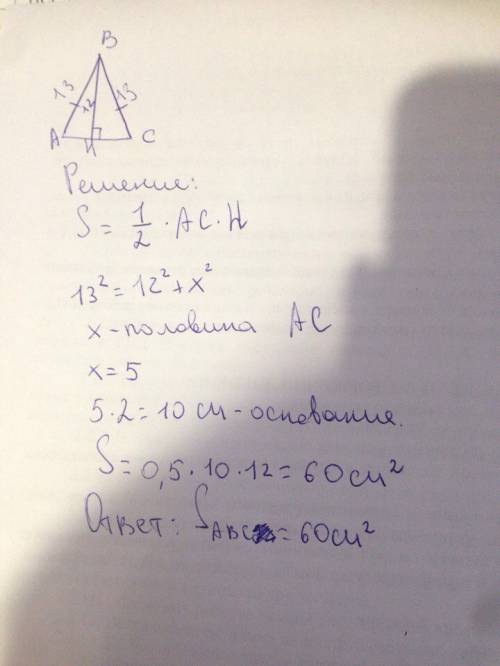 B
13 12 13
A H C
Решение:
S = 1/2 · AC · H
13² = 12² + x²
x - половина AC
x = 5
5 · 2 = 10 см - основание.
S = 0,5 · 10 · 12 = 60 см²
Ответ: S ABC = 60 см²